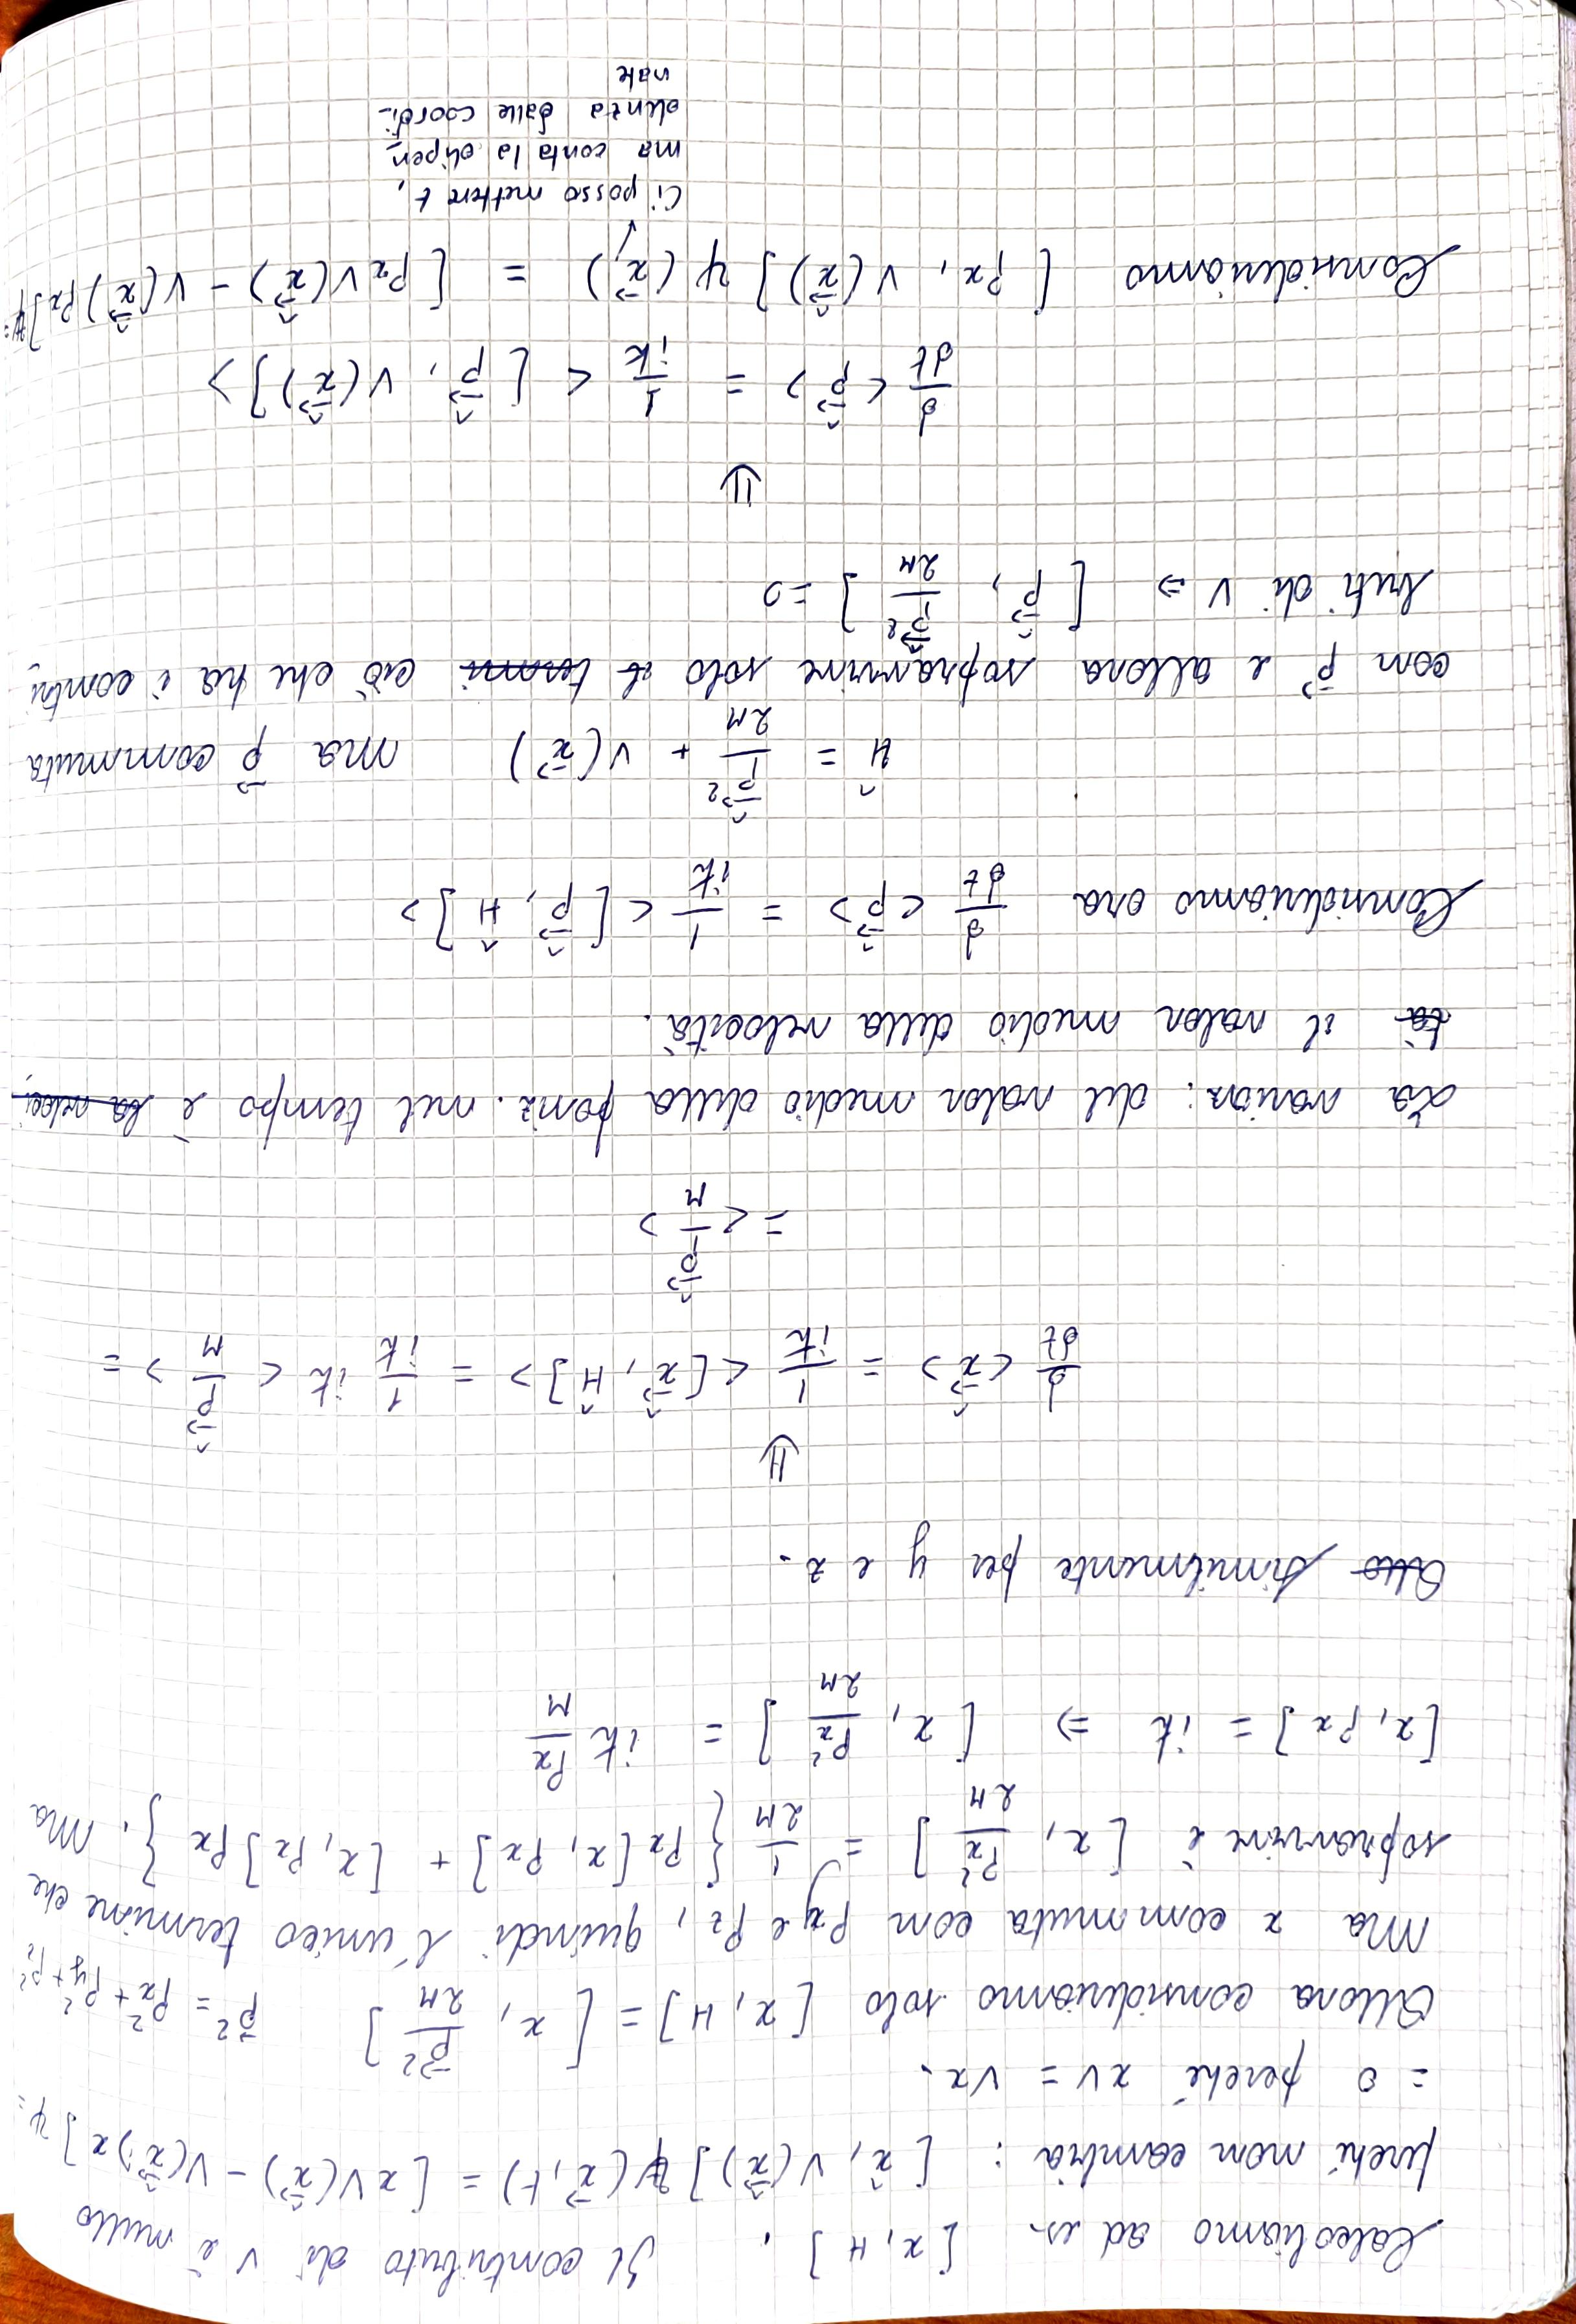 Calcoliamo ad es. [x, H]. Il contributo di V è nullo
perché non cambia: [x̂, V(x̂⃗)]ψ(x⃗, t) = [xV(x̂⃗) − V(x̂⃗)x]ψ=
= 0 perché xV = Vx.
Allora consideriamo solo [x, H] = [x, p⃗²/2M] p⃗² = px² + py² + pz²
Ma x commuta con py e pz, quindi l'unico termine che
sopravvive è [x, px²/2M] = 1/2M {px[x, px] + [x, px]px}. Ma
[x, px] = iħ ⇒ [x, px²/2M] = iħ px/M
Allo Similmente per y e z.
⇓
d/dt <x̂⃗> = 1/iħ <[x̂⃗, Ĥ]> = 1/iħ iħ <p̂⃗/M> =
= <p̂⃗/M>
La variaz: del valor medio della posiz. nel tempo è la veloci
tà il valor medio della velocità.
Consideriamo ora d/dt <p̂⃗> = 1/iħ <[p̂⃗, Ĥ]>
Ĥ = p̂⃗²/2M + V(x⃗) Ma p⃗ commuta
con p⃗ e allora sopravvive solo il termi ciò che ha i contri
buti di V ⇒ [p̂⃗, p̂⃗²/2M] = 0
⇓
d/dt <p̂⃗> = 1/iħ <[p̂⃗, V(x̂⃗)]>
Consideriamo [px, V(x̂⃗)]ψ(x⃗,) = [pxV(x̂⃗) − V(x̂⃗)px]ψ=
Ci posso mettere t,
ma conta la dipen
denza dalle coordi-
nate